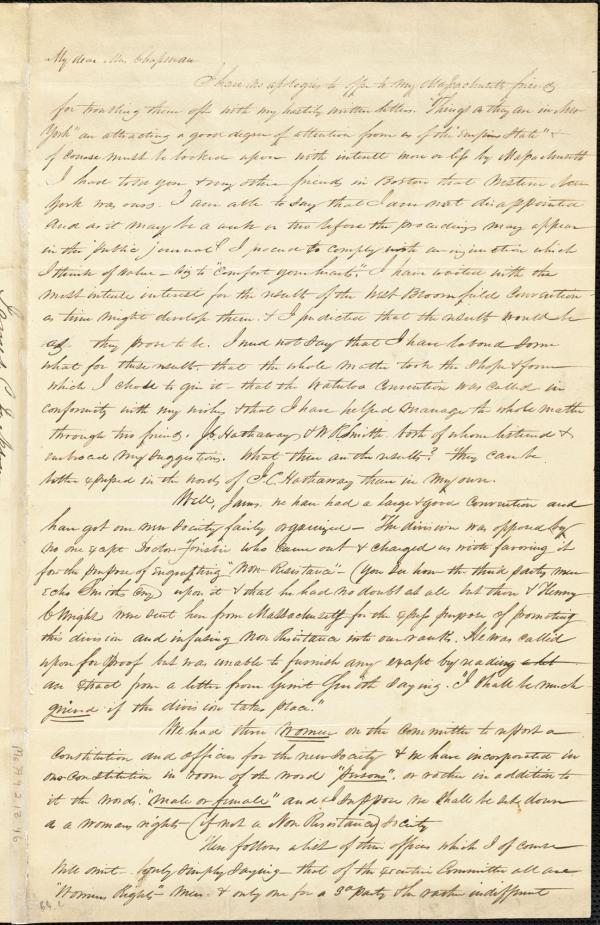 My dear Mrs. Chapman
I have no apologies to offer to my Massachusetts friends
for troubling them often with my hastily written letters. "Things as they are in New
York" are attracting a good degree of attention from us of the "Empire State" &
of course must be looked upon with interest more or less by Massachusetts
I had told you & many other friends in Boston that Western New
York was ours. I am able to say that I am not disappointed
and as it may be a week or two before the proceedings may appear
in the public journals I proceed to comply with an injunction which
I think of value – viz to "comfort your hearts". I have waited with the
most intense interest for the result of the West Bloomfield Convention
as time might develop them. & I predicted that the results would be
as they prove to be. I need not say that I have labored some
what for these results, that the whole matter took the shape & form
which I chose to give it – that the Waterloo Convention was called in
conformity with my wishes & that I have helped manage the whole matter
through two friends. J.C. Hathaway & W.R. Smith both of whom listened &
embraced my suggestions. What then are the results? They can be
better expressed in the words of J.C. Hathaway than in my own.
Well, James. we have had a large & good Convention and
have got our new Society fairly organized – The division was opposed by
no one except Doctor who came out & charged us with favoring it
for the purpose of engrafting "Non-Resistance" – (you see how the third party men
echo Smith) upon it & that he had no doubt at all but thou & Henry
C Wright were sent here from Massachusetts for the express purpose of promoting
this division and infusing Non Resistance into our ranks. He was called
upon for proof but was unable to furnish any except by reading a let
an extract from a letter from Gerrit Smith saying. "I shall be much
grieved if the division takes place."
We had three women on the Committee to report a
Constitution and officers for the new Society & we have incorporated in
our Constitution in room of the word "persons", or rather in addition to
it the words. "male or female" and I suppose we shall be set down
as a womans rights (if not a Non Resistance) Society
Then follows a list of their officers which I of course
will omit – simply saying – that of the Executive Committee all are
"Womens Rights" men & only one for a 3d party & he rather indifferent
James C. Jackson
Ms.A.9.2.13.46
64.